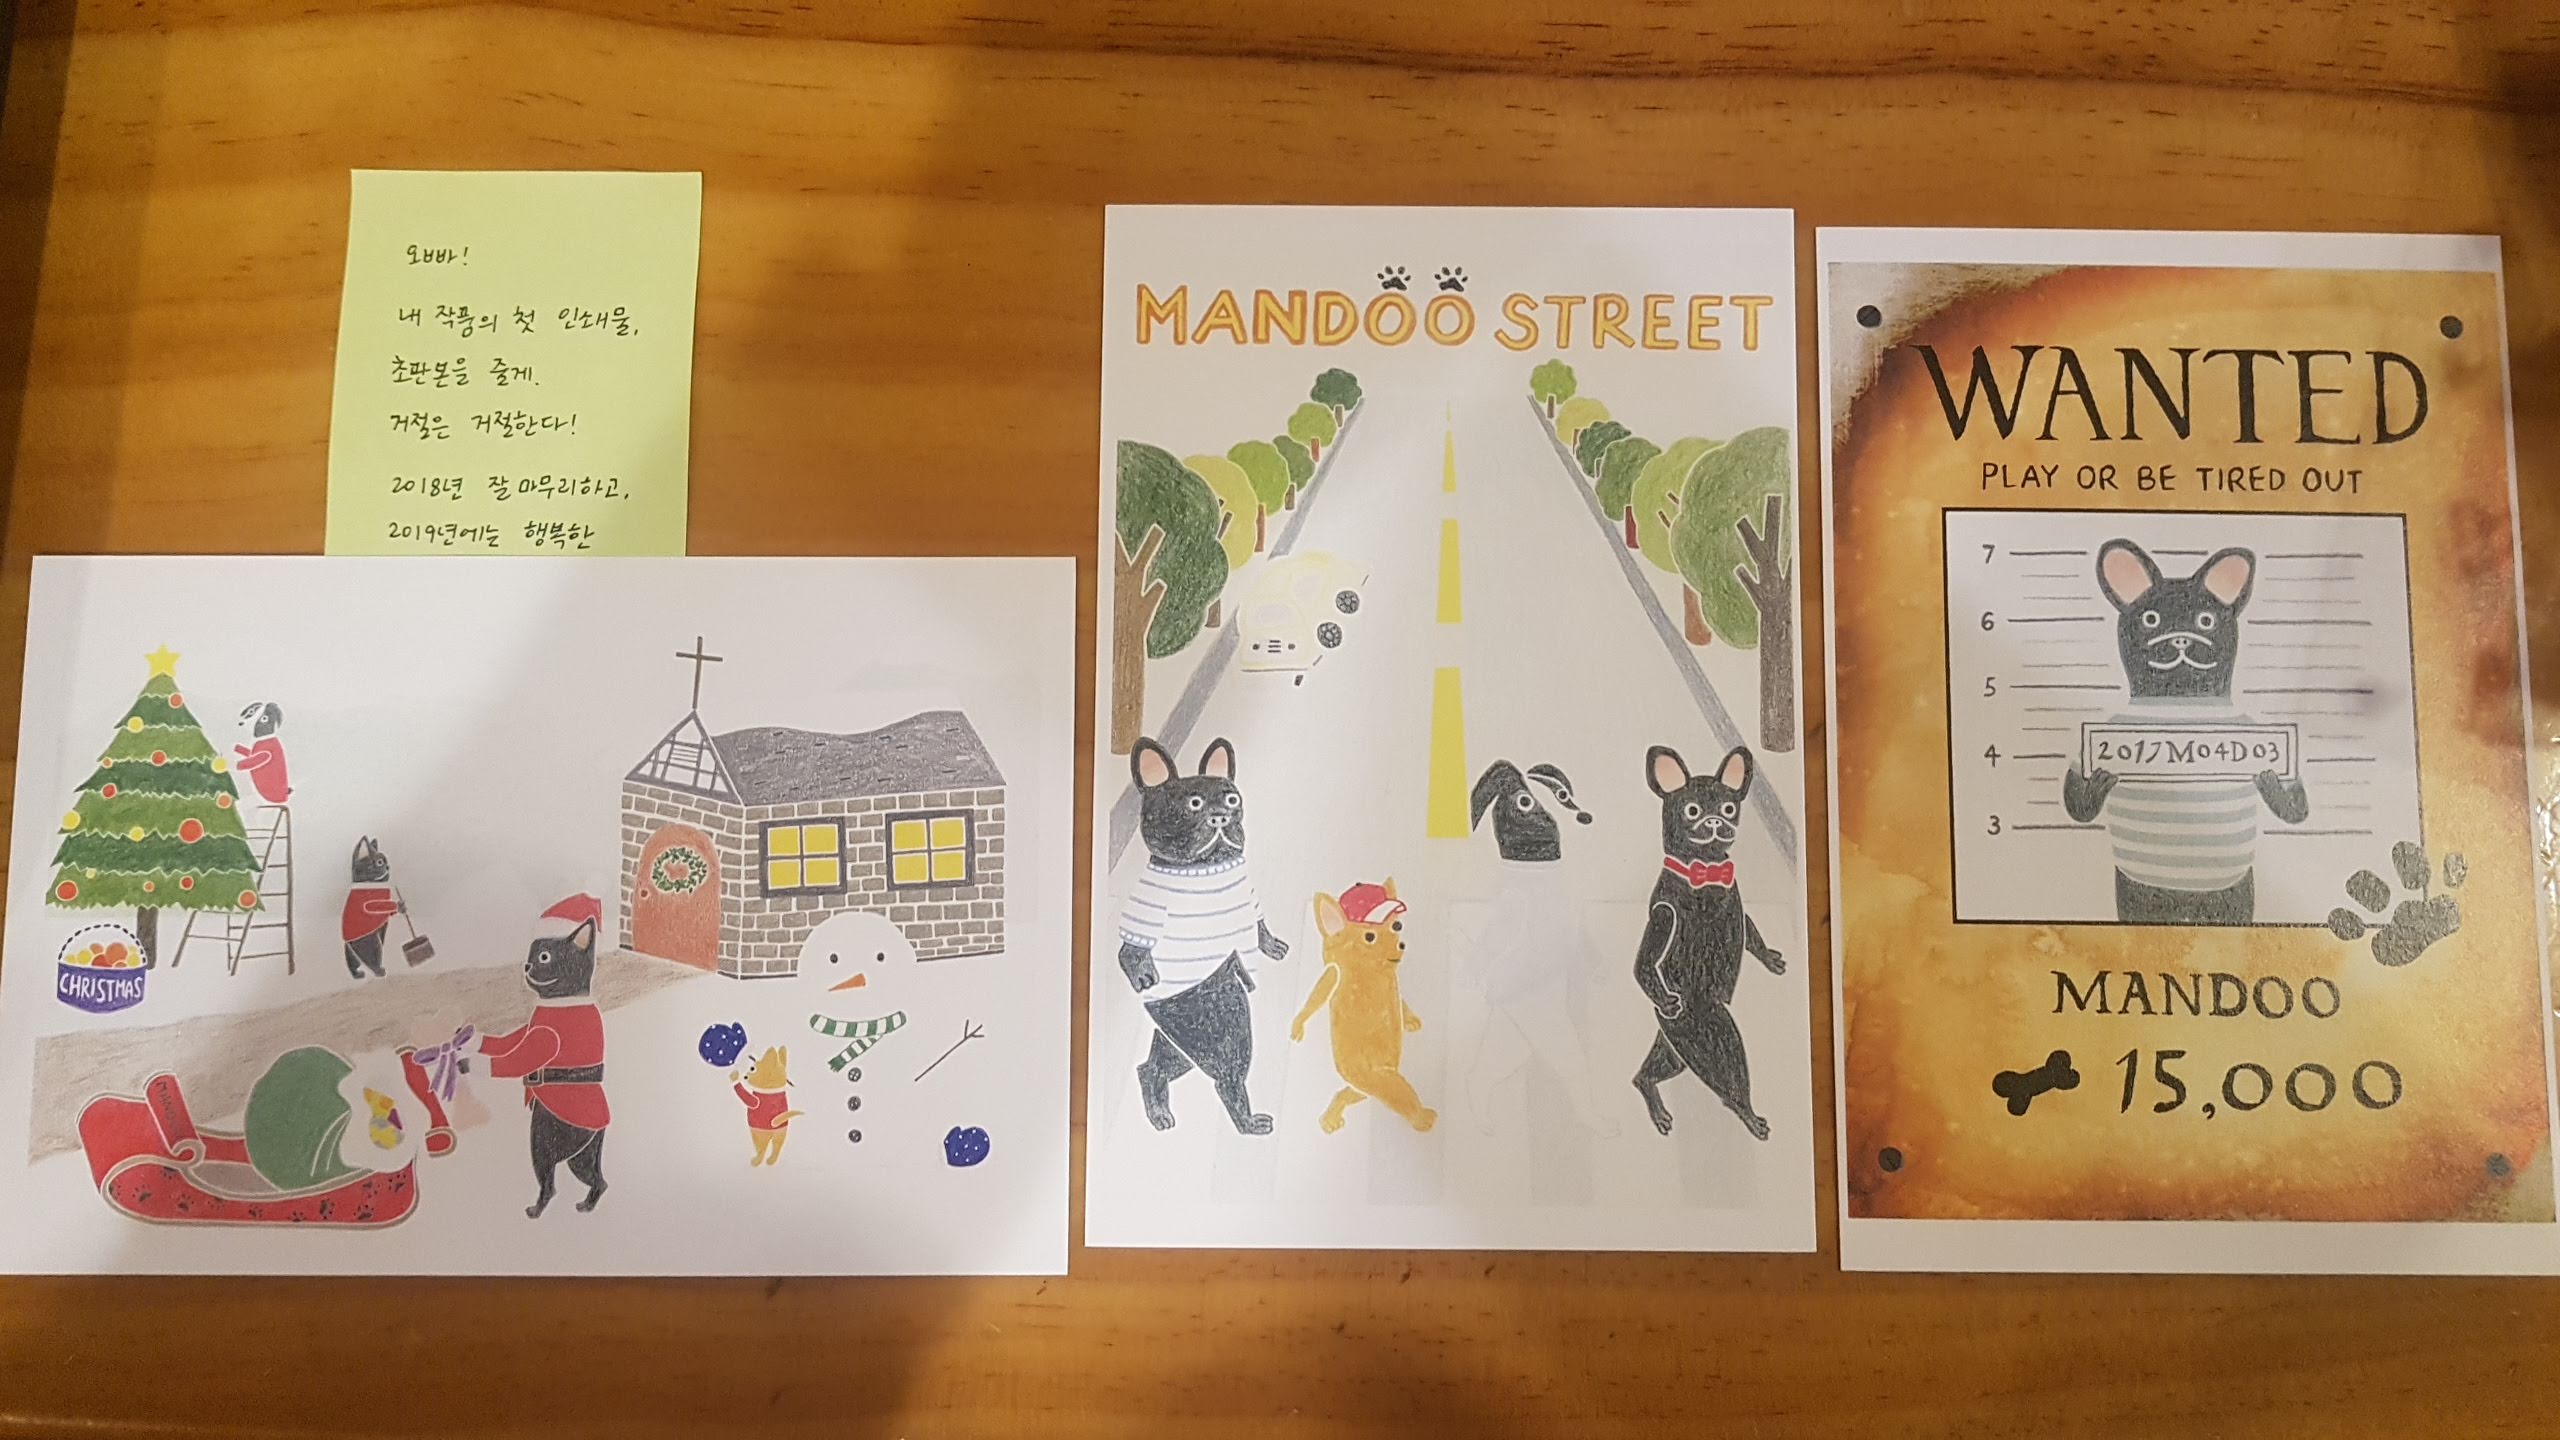 오빠!
내 작품의 첫 인쇄물,
초판본을 줄게.
거절은 거절한다!
2018년 잘 마무리하고,
2019년에는 행복한
CHRISTMAS
MANDOO STREET
WANTED
PLAY OR BE TIRED OUT
7
6
5
4
3
2017M04D03
MANDOO
15,000